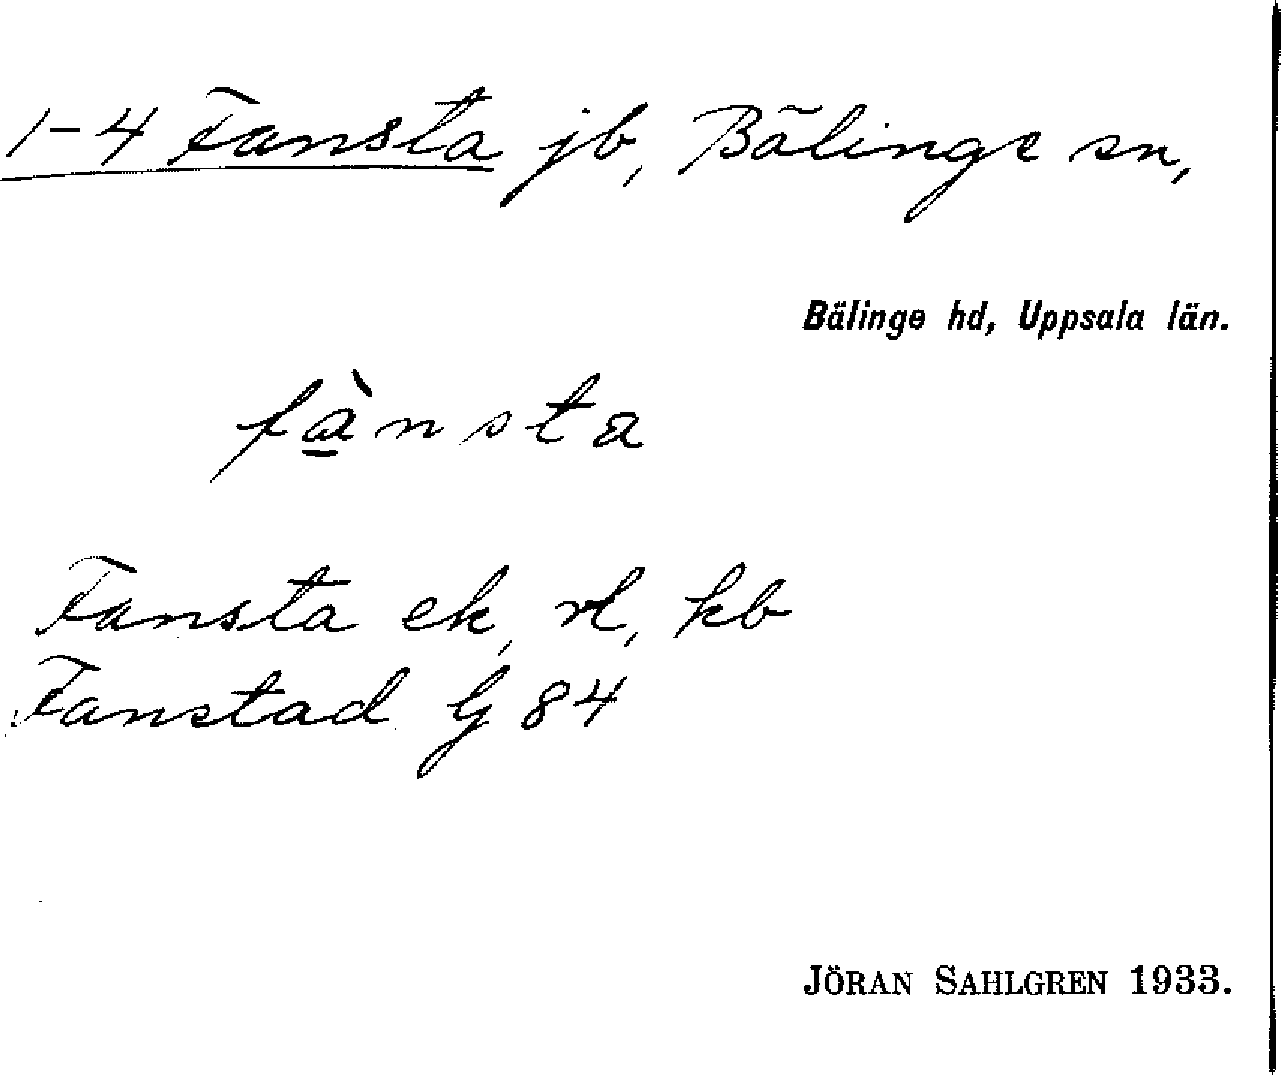 1-4 Fansta jb, Bälinge sn,
Bälinge hd, Uppsala län.
fà̱nsta
Fansta ek, rl, kb
Fanstad G 84
JÖRAN SAHLGREN 1933.